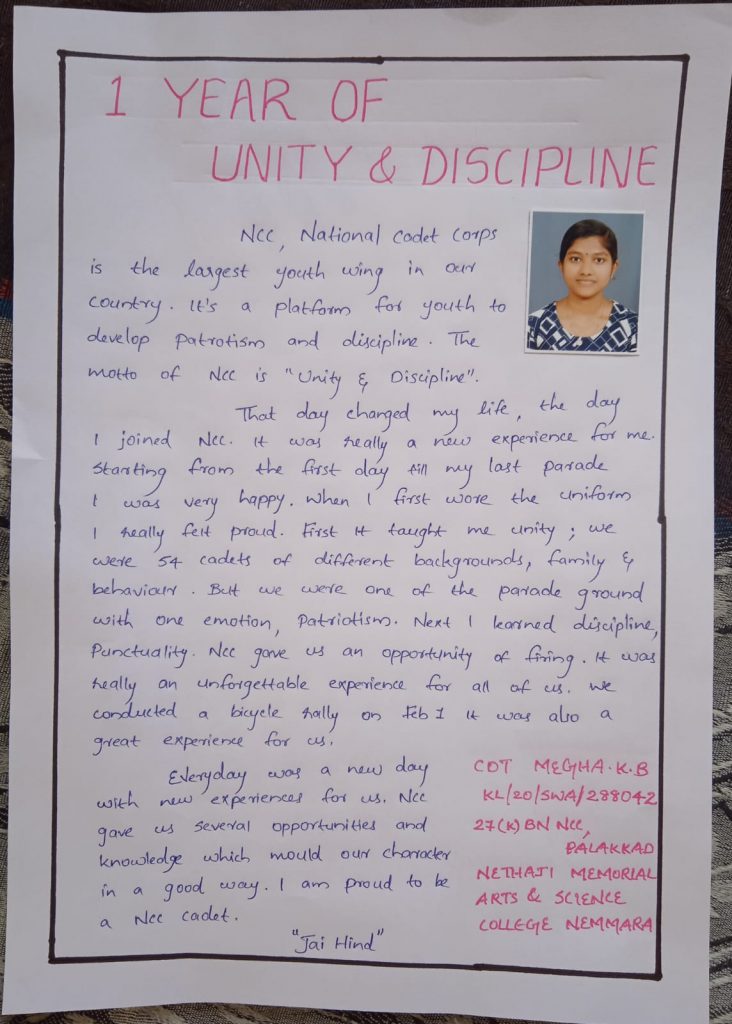 1 YEAR OF
UNITY & DISCIPLINE
NCC, National Cadet Corps
is the largest youth wing in our
country. It's a platform for youth to
develop Patrotism and discipline. The
motto of NCC is "Unity & Discipline".
That day changed my life, the day
I joined NCC. It was really a new experience for me.
Starting from the first day till my last parade
I was very happy. When I first wore the uniform
I really felt proud. First it taught me unity; we
were 54 cadets of different backgrounds, family &
behaviour. But we were one of the parade ground
with one emotion, Patriotism. Next I learned discipline,
Punctuality. NCC gave us an opportunity of firing. It was
really an unforgettable experience for all of us. We
conducted a bicycle rally on Feb 1 It was also a
great experience for us.
Everyday was a new day
with new experiences for us. NCC
gave us several opportunities and
knowledge which mould our character
in a good way. I am proud to be
a NCC cadet.
"Jai Hind"
CDT MEGHA.K.B
KL/20/SWA/288042
27(K) BN NCC,
PALAKKAD
NETHAJI MEMORIAL
ARTS & SCIENCE
COLLEGE NEMMARA